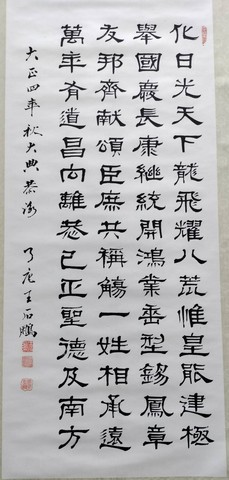 化日光天下龍飛耀八荒惟皇能建極
舉國慶長康繼統開鴻業垂型錫鳳章
友邦齊献頌臣庶共稱觴一姓相承遠
萬年有道昌向離恭己正聖德及南方
大正四年秋大典恭 了庵王石鵬